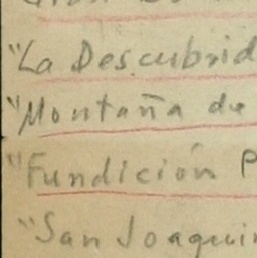 "La Descubrid
"Montaña de
"Fundición P
"San Joaquin